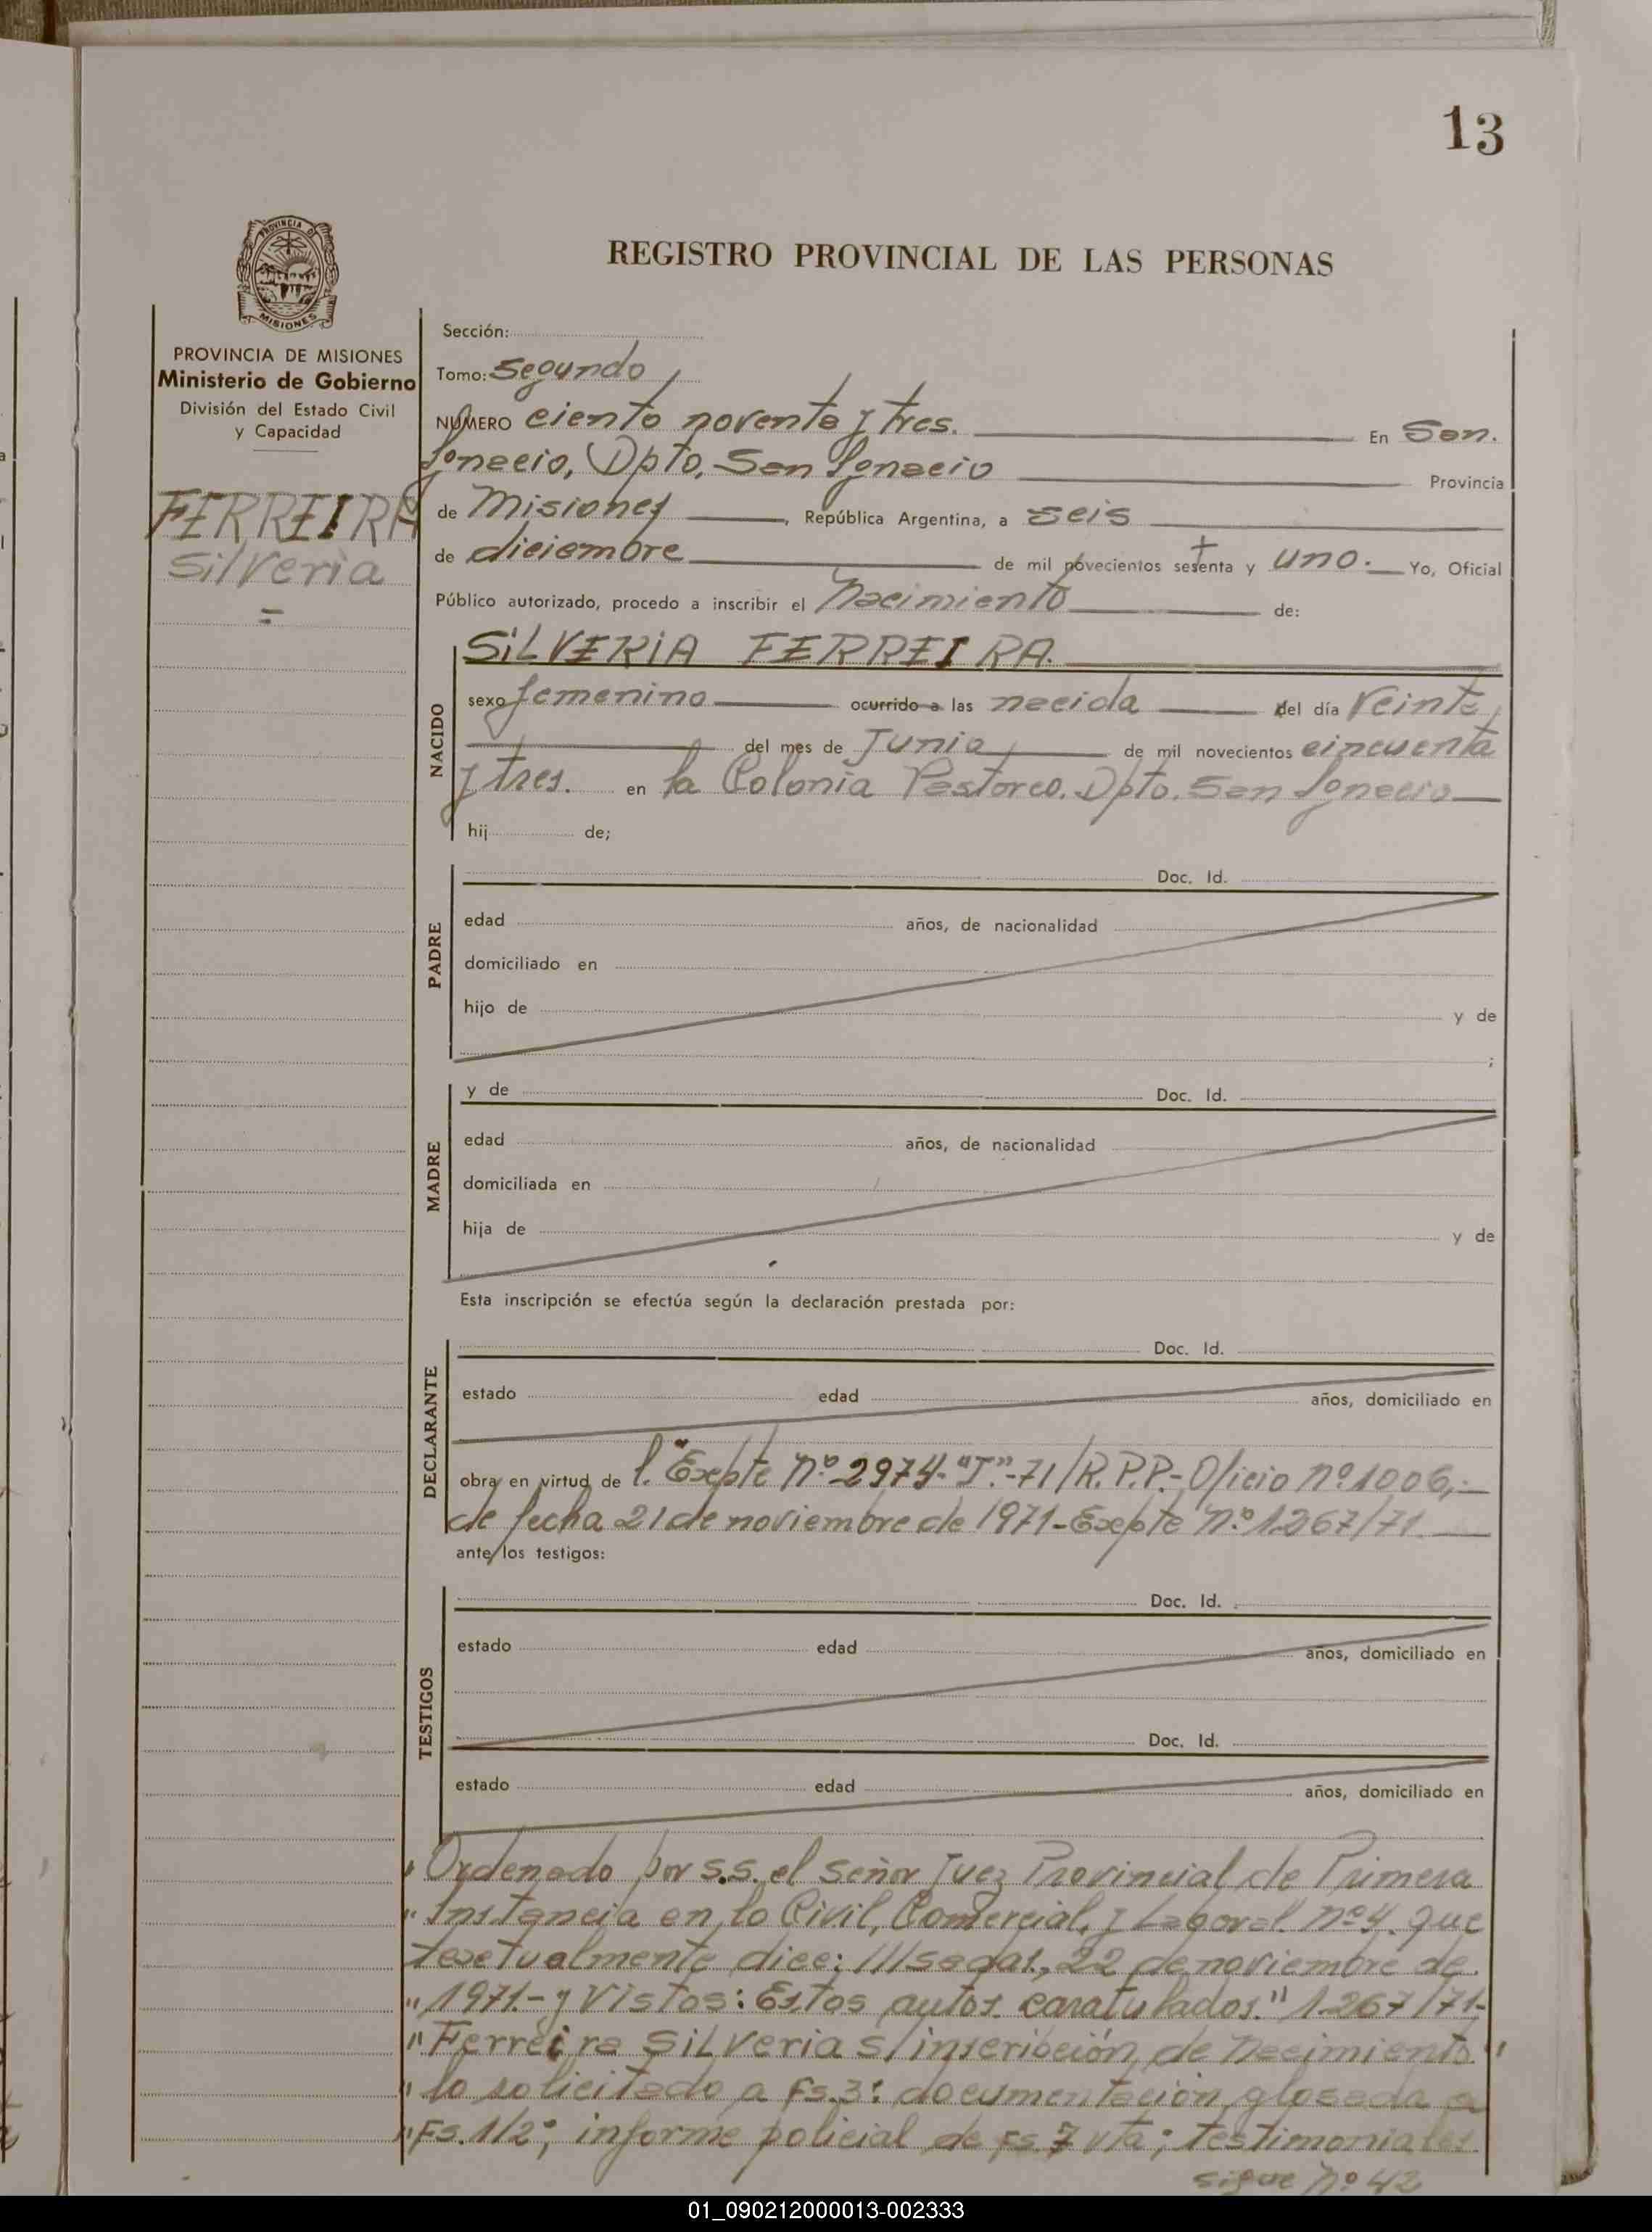 13
PROVINCIA DE MISIONES
REGISTRO PROVINCIAL DE LAS PERSONAS
PROVINCIA DE MISIONES
Ministerio de Gobierno
División del Estado Civil
y Capacidad
FERREIRA
Silveria
=
Sección:
Tomo: Segundo
NÚMERO ciento noventa y tres. En San.
Ignacio, Dpto, San Ignacio Provincia
de Misiones, República Argentina, a seis
de diciembre de mil novecientos setenta y uno. Yo, Oficial
Público autorizado, procedo a inscribir el Nacimiento de:
NACIDO
SiLVERiA FERREIRA.
sexo femenino ocurrido a las nacida del día Veinte
del mes de Junio de mil novecientos cincuenta
y tres. en la Colonia Pastoreo. Dpto. San Ignacio
hij de;
PADRE
Doc. Id.
edad años, de nacionalidad
domiciliado en
hijo de y de
;
MADRE
y de Doc. Id.
edad años, de nacionalidad
domiciliada en
hija de y de
Esta inscripción se efectúa según la declaración prestada por:
DECLARANTE
Doc. Id.
estado edad años, domiciliado en
obra en virtud de l. Expte Nº 2974-"J"-71/R.P.P.- Oficio nº 1006,-
de fecha 21 de noviembre de 1971-Expte Nº 1.267/71.
ante los testigos:
TESTIGOS
Doc. Id.
estado edad años, domiciliado en
Doc. Id.
estado edad años, domiciliado en
" Ordenado por S.S. el Señor Juez Provincial de Primera
" Instancia en lo Civil, Comercial y Laboral nº 4. que
textualmente dice: ///sadas, 22 de noviembre de
" 1971.- y Vistos: Estos autos caratulados." 1.267/71-
" Ferreira SiLVeria S/inscribción de Nacimiento "
" lo solicitado a Fs.3: documentación glosada a
" Fs. 1/2; informe policial de Fs 7 vta; testimoniales
sigue nº 42
01_090212000013-002333